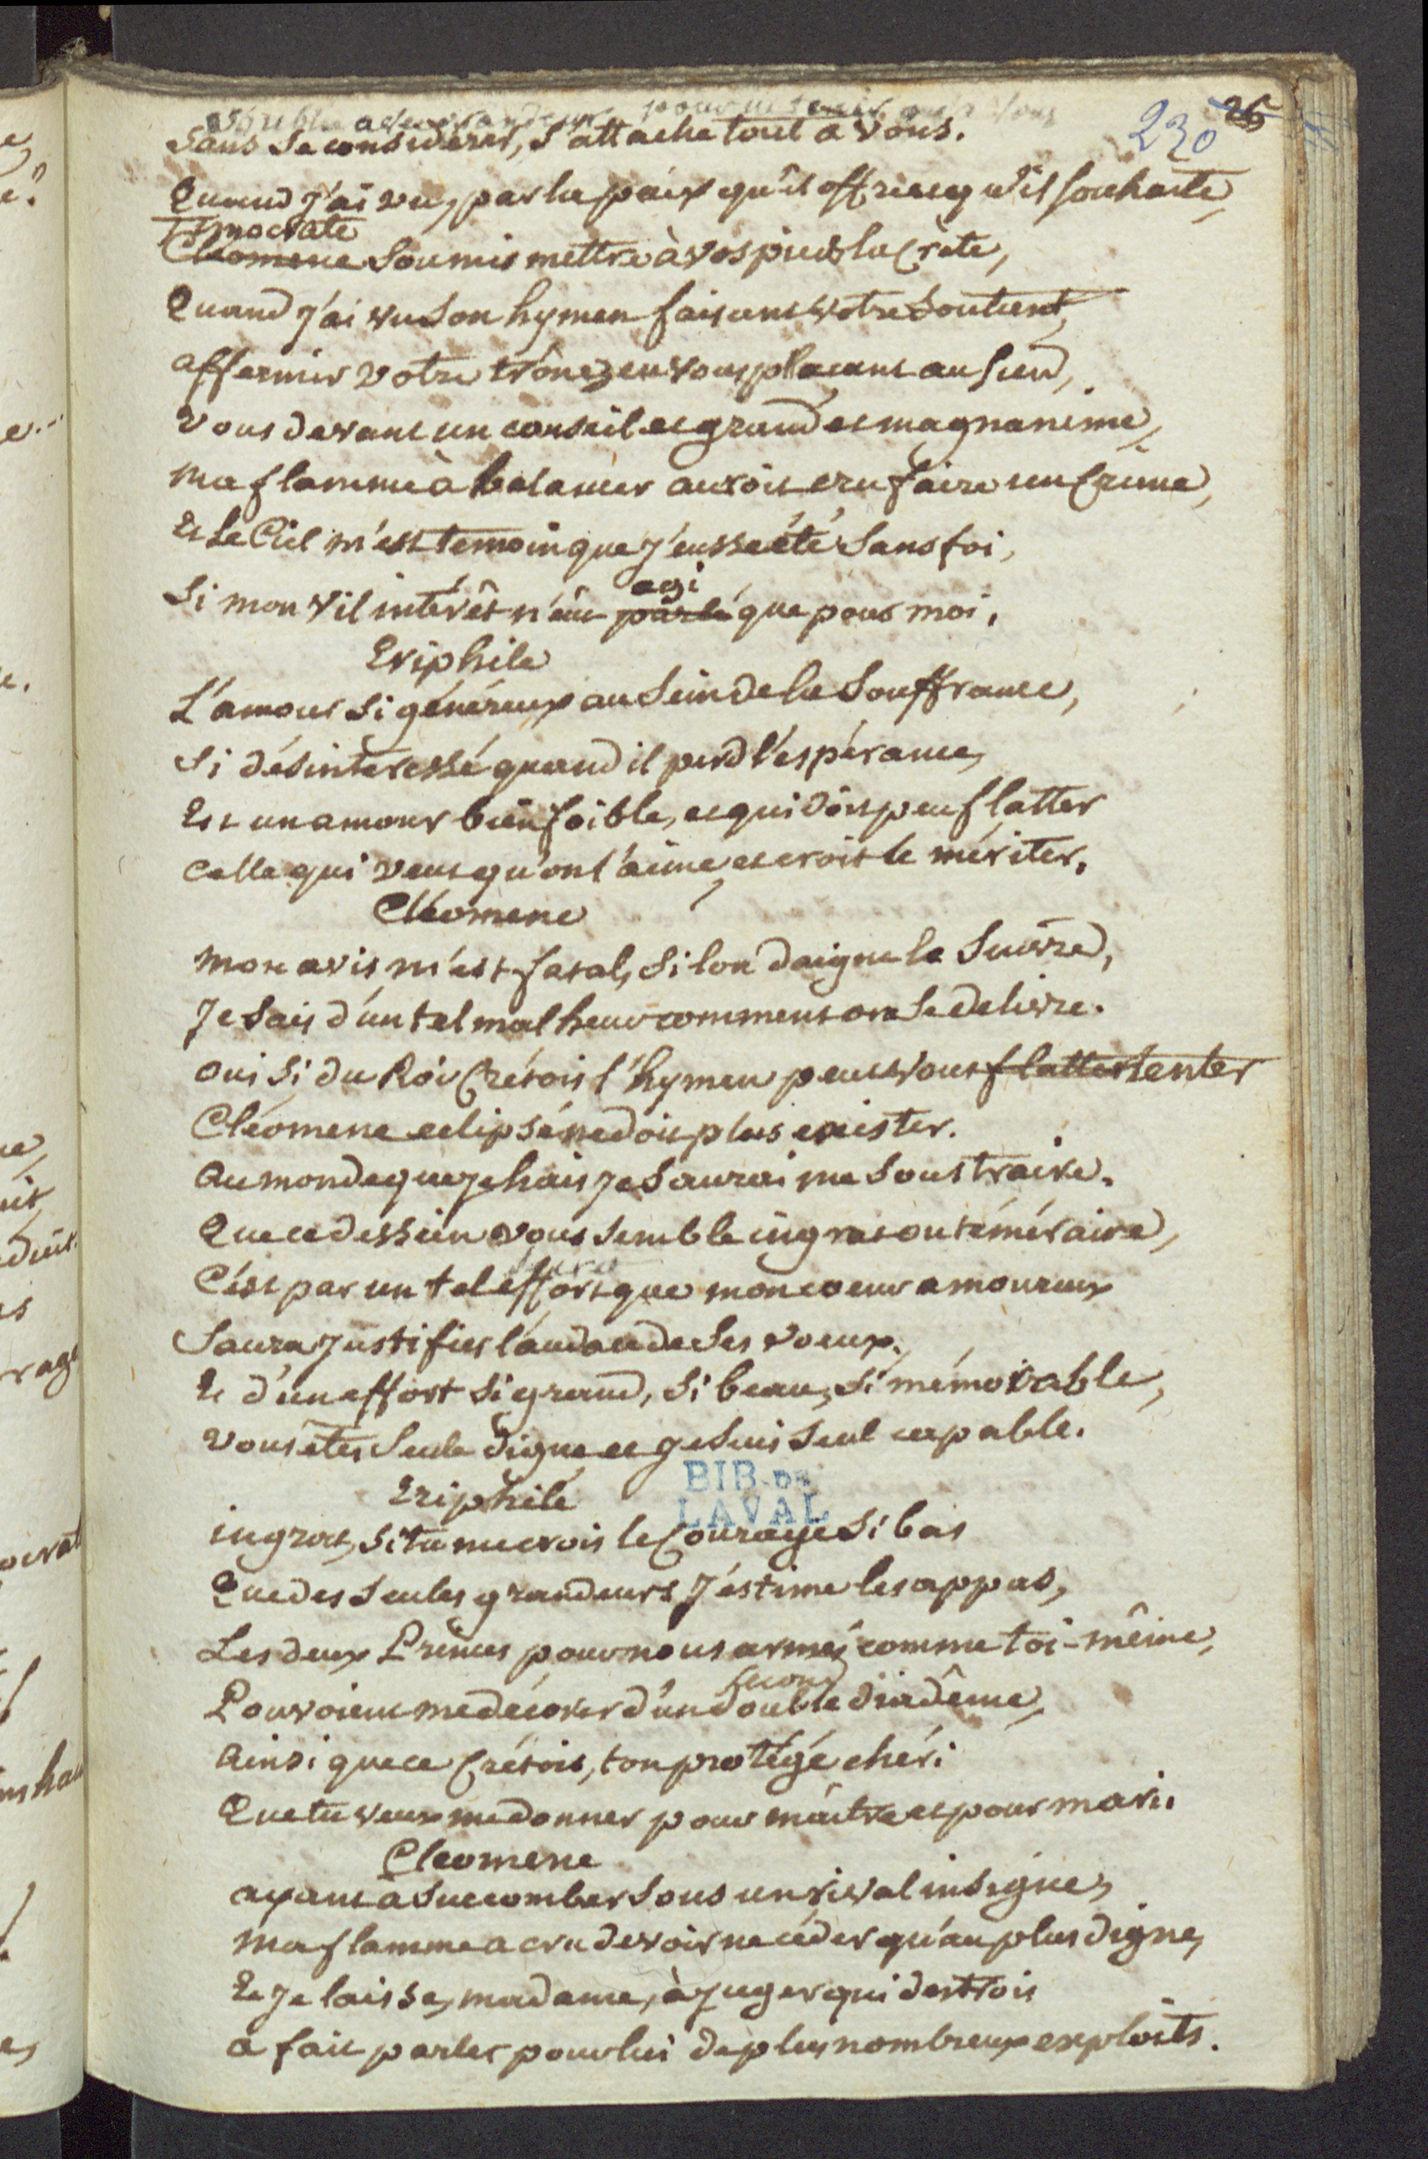 230 26
sans se considérer, s'attache tout à vous.
Quand j'ai vu, par la paix qu'il offre et qu'il souhaite,
Timocrate
Cléomene soumis mettre à vos pieds la Crète,
Quand j'ai vu son hymen faisant votre soutient,
affermir votre trône, en vous plaçant au sien,
vous devant un conseil et grand et magnanime,
Ma flamme à balancer auroit cru faire un Crime,
Et le Ciel m'est temoin que j'eusse été sans foi,
agi
Si mon vil intérêt n'eût parlé que pour moi.
Eriphile
L'amour si généreux au sein de la souffrance,
Si désinteressé quand il perd l'espérance,
Est un amour bien foible, et qui doit peu flatter
Celle qui veut qu'on l'aime, et croit le mériter.
Cléomene
Mon avis m'est fatal, si l'on daigne le suivre,
Je sais d'un tel malheur comment on se delivre.
Oui si du Roi Crétois l'hymen peut vous flatter tenter
Cléomene eclipsé ne doit plus exister.
Au monde que je hais je saurai me soustraire.
Que ce dessein vous semble ingrat ou téméraire,
C'est par un tel effort que mon coeur amoureux
Saura justifier l'audace de ses voeux.
Et d'un effort si grand, si beau, si mémorable,
Vous êtes seule digne et je suis seul capable.
BIB. DE
LAVAL
Eriphile
ingrat, si tu me crois le Courage si bas
Que des seules grandeurs j'estime les appas,
Les deux Princes pour nous armés comme toi-même,
second
Pouvoient me décorer d'un double diadême,
Ainsi que ce Crétois, ton protégé chéri
Que tu veux me donner pour maître et pour mari.
Cleomene
ayant à succomber sous un rival insigne,
Ma flamme a cru devoir ne céder qu'au plus digne,
Et je laisse, madame, à juger qui des trois
a fait parler pour lui de plus nombreux exploits.